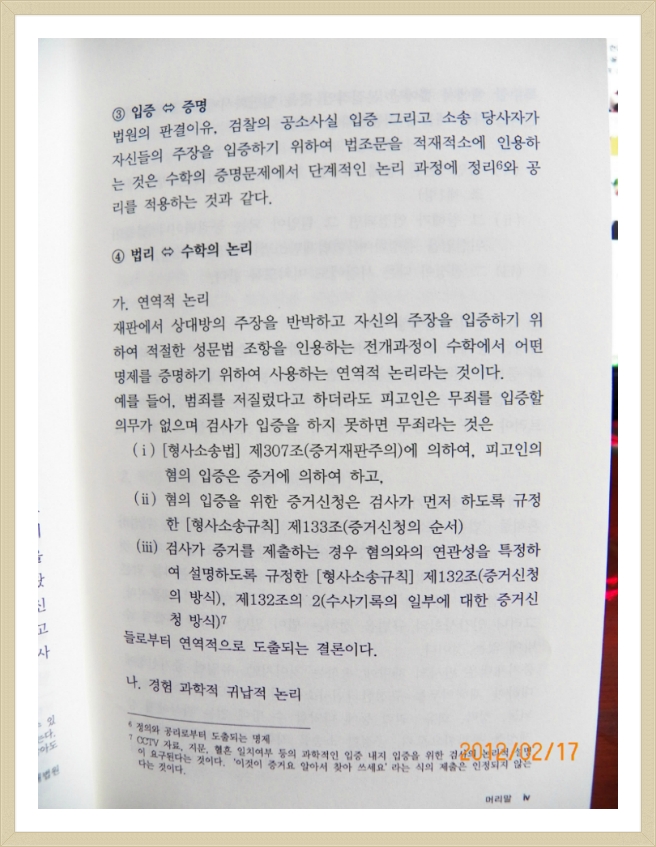 ③ 입증 ⇔ 증명
법원의 판결이유, 검찰의 공소사실 입증 그리고 소송 당사자가
자신들의 주장을 입증하기 위하여 법조문을 적재적소에 인용하
는 것은 수학의 증명문제에서 단계적인 논리 과정에 정리6와 공
리를 적용하는 것과 같다.
④ 법리 ⇔ 수학의 논리
가. 연역적 논리
재판에서 상대방의 주장을 반박하고 자신의 주장을 입증하기 위
하여 적절한 성문법 조항을 인용하는 전개과정이 수학에서 어떤
명제를 증명하기 위하여 사용하는 연역적 논리라는 것이다.
예를 들어, 범죄를 저질렀다고 하더라도 피고인은 무죄를 입증할
의무가 없으며 검사가 입증을 하지 못하면 무죄라는 것은
(ⅰ) [형사소송법] 제307조(증거재판주의)에 의하여, 피고인의
혐의 입증은 증거에 의하여 하고,
(ⅱ) 혐의 입증을 위한 증거신청은 검사가 먼저 하도록 규정
한 [형사소송규칙] 제133조(증거신청의 순서)
(ⅲ) 검사가 증거를 제출하는 경우 혐의와의 연관성을 특정하
여 설명하도록 규정한 [형사소송규칙] 제132조(증거신청
의 방식), 제132조의 2(수사기록의 일부에 대한 증거신
청 방식)7
들로부터 연역적으로 도출되는 결론이다.
나. 경험 과학적 귀납적 논리
6 정의와 공리로부터 도출되는 명제
7 CCTV 자료, 지문, 혈흔 일치여부 등의 과학적인 입증 내지 입증을 위한 검사의 논리적 설명
이 요구된다는 것이다. '이것이 증거요 알아서 찾아 쓰세요' 라는 식의 제출은 인정되지 않는
다는 것이다.
2012/02/17
머리말 iv